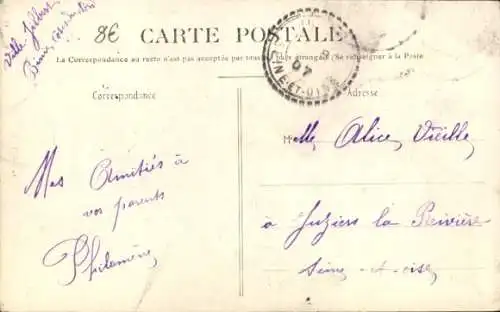 8€
CARTE POSTALE
La Correspondance au recto n'est pas acceptée par tous pays étrangers (Se renseigner à la Poste
Correspondance
Adresse
07
SEINE-ET-OISE
Mes Amitiés à
vos parents
Philomène
Melle Alice Vieille
à Juziers la Rivière
Seine-et-oise